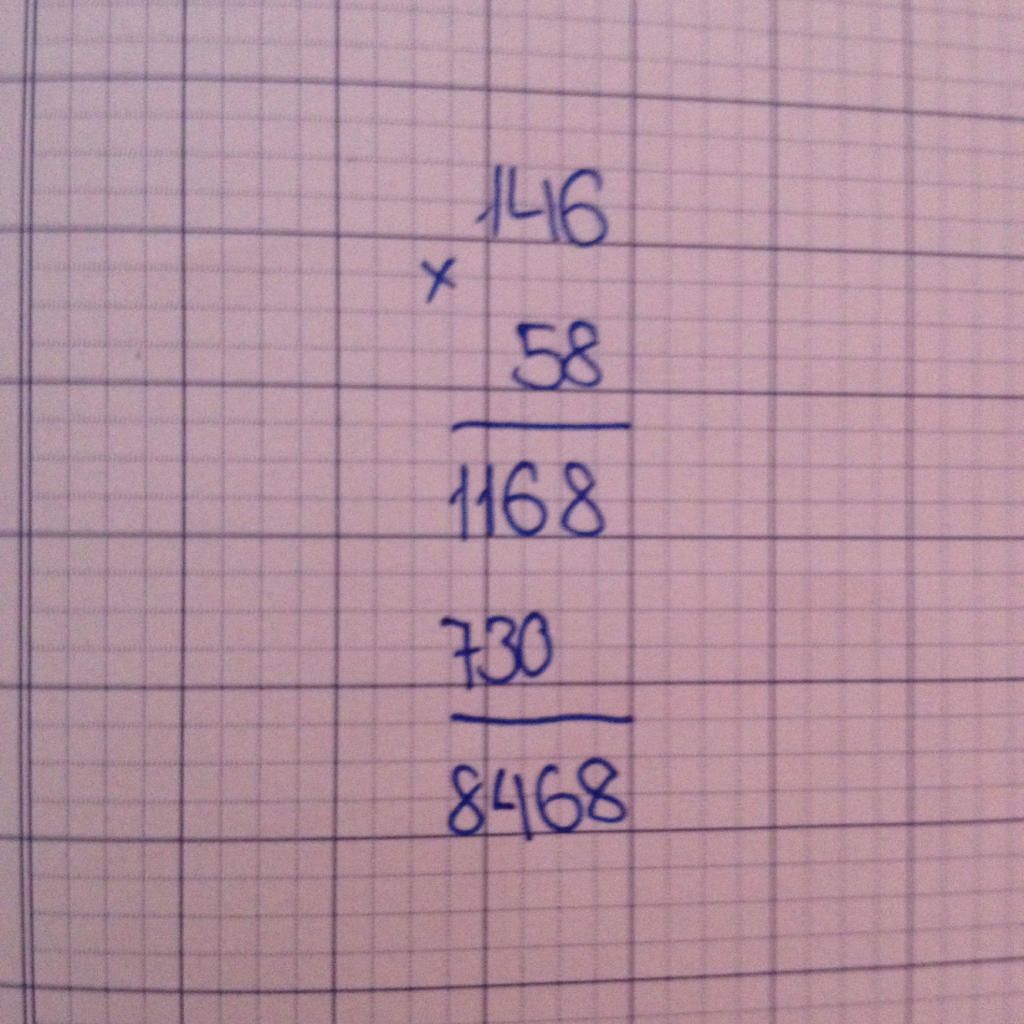 146
x
58
1168
730
8468